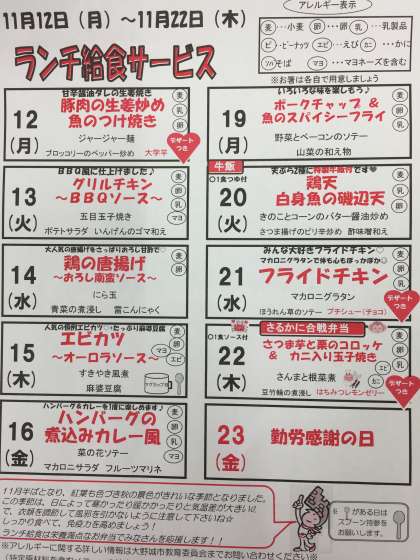 11月12日(月)～11月22日(木)
ランチ給食サービス
アレルギー表示
麦…小麦 卵…卵 乳…乳製品
ピ…ピーナッツ エビ…えび カニ…かに
ソバ そば マヨ…マヨネーズを含む
※お箸は各自で用意しましょう
12
(月)
甘辛醤油ダレの生姜焼き
豚肉の生姜炒め
魚のつけ焼き
ジャージャー麺
ブロッコリーのペッパー炒め 大学芋
麦
卵
乳
デザートつき
13
(火)
BBQ風に仕上げました♪
グリルチキン
～BBQソース～
五目玉子焼き
ポテトサラダ いんげんのゴマ和え
麦
卵
乳
マヨ
14
(水)
大人気の唐揚げをさっぱりおろし甘酢で♡
鶏の唐揚げ
～おろし南蛮ソース～
にら玉
青菜の煮浸し 雷こんにゃく
麦
卵
15
(木)
エビカツ
～オーロラソース～
すきやき風煮
麻婆豆腐
麦
卵
乳
マヨ
エビ
16
(金)
ハンバーグ&カレーを1度に楽しめます♪
ハンバーグの
煮込みカレー風
菜の花ソテー
マカロニサラダ フルーツマリネ
麦
卵
乳
マヨ
19
(月)
いろいろな味を楽しもう♪
ポークチャップ &
魚のスパイシーフライ
野菜とベーコンのソテー
山菜の和え物
麦
卵
乳
牛飯
○1食つゆ付
20
(火)
天ぷら2種に特製牛飯付です♥
鶏天
白身魚の磯辺天
きのことコーンのバター醤油炒め
さつま揚げのピリ辛炒め 酢味増和え
麦
卵
乳
21
(水)
みんな大好きフライドチキン♡
マカロニグラタンで体も心もぽっかぽか♪
フライドチキン
マカロニグラタン
ほうれん草のソテー プチシュー(チョコ)
麦
卵
乳
デザートつき
さるかに合戦弁当
○1食ソース付
22
(木)
さつま芋と栗のコロッケ
& カニ入り玉子焼き
さんまと根菜煮
豆竹輪の煮浸し はちみつレモンゼリー
麦
卵
乳
エビ
カニ
デザートつき
23
(金)
勤労感謝の日
11月半ばとなり、紅葉も色づき秋の景色がきれいな季節となりました。
この季節は、日によって寒かったり暖かかったりと気温差が大きいの
で、衣類を調節して風邪を引かないように注意して下さいね☆
しっかり食べて、免疫力を高めましょう!
ランチ給食は栄養満点なお弁当でみなさんを応援します!!
がある日は
スプーン持参を
お願いします。
※アレルギーに関する詳しい情報は大野城市教育委員会までお問い合わせください※